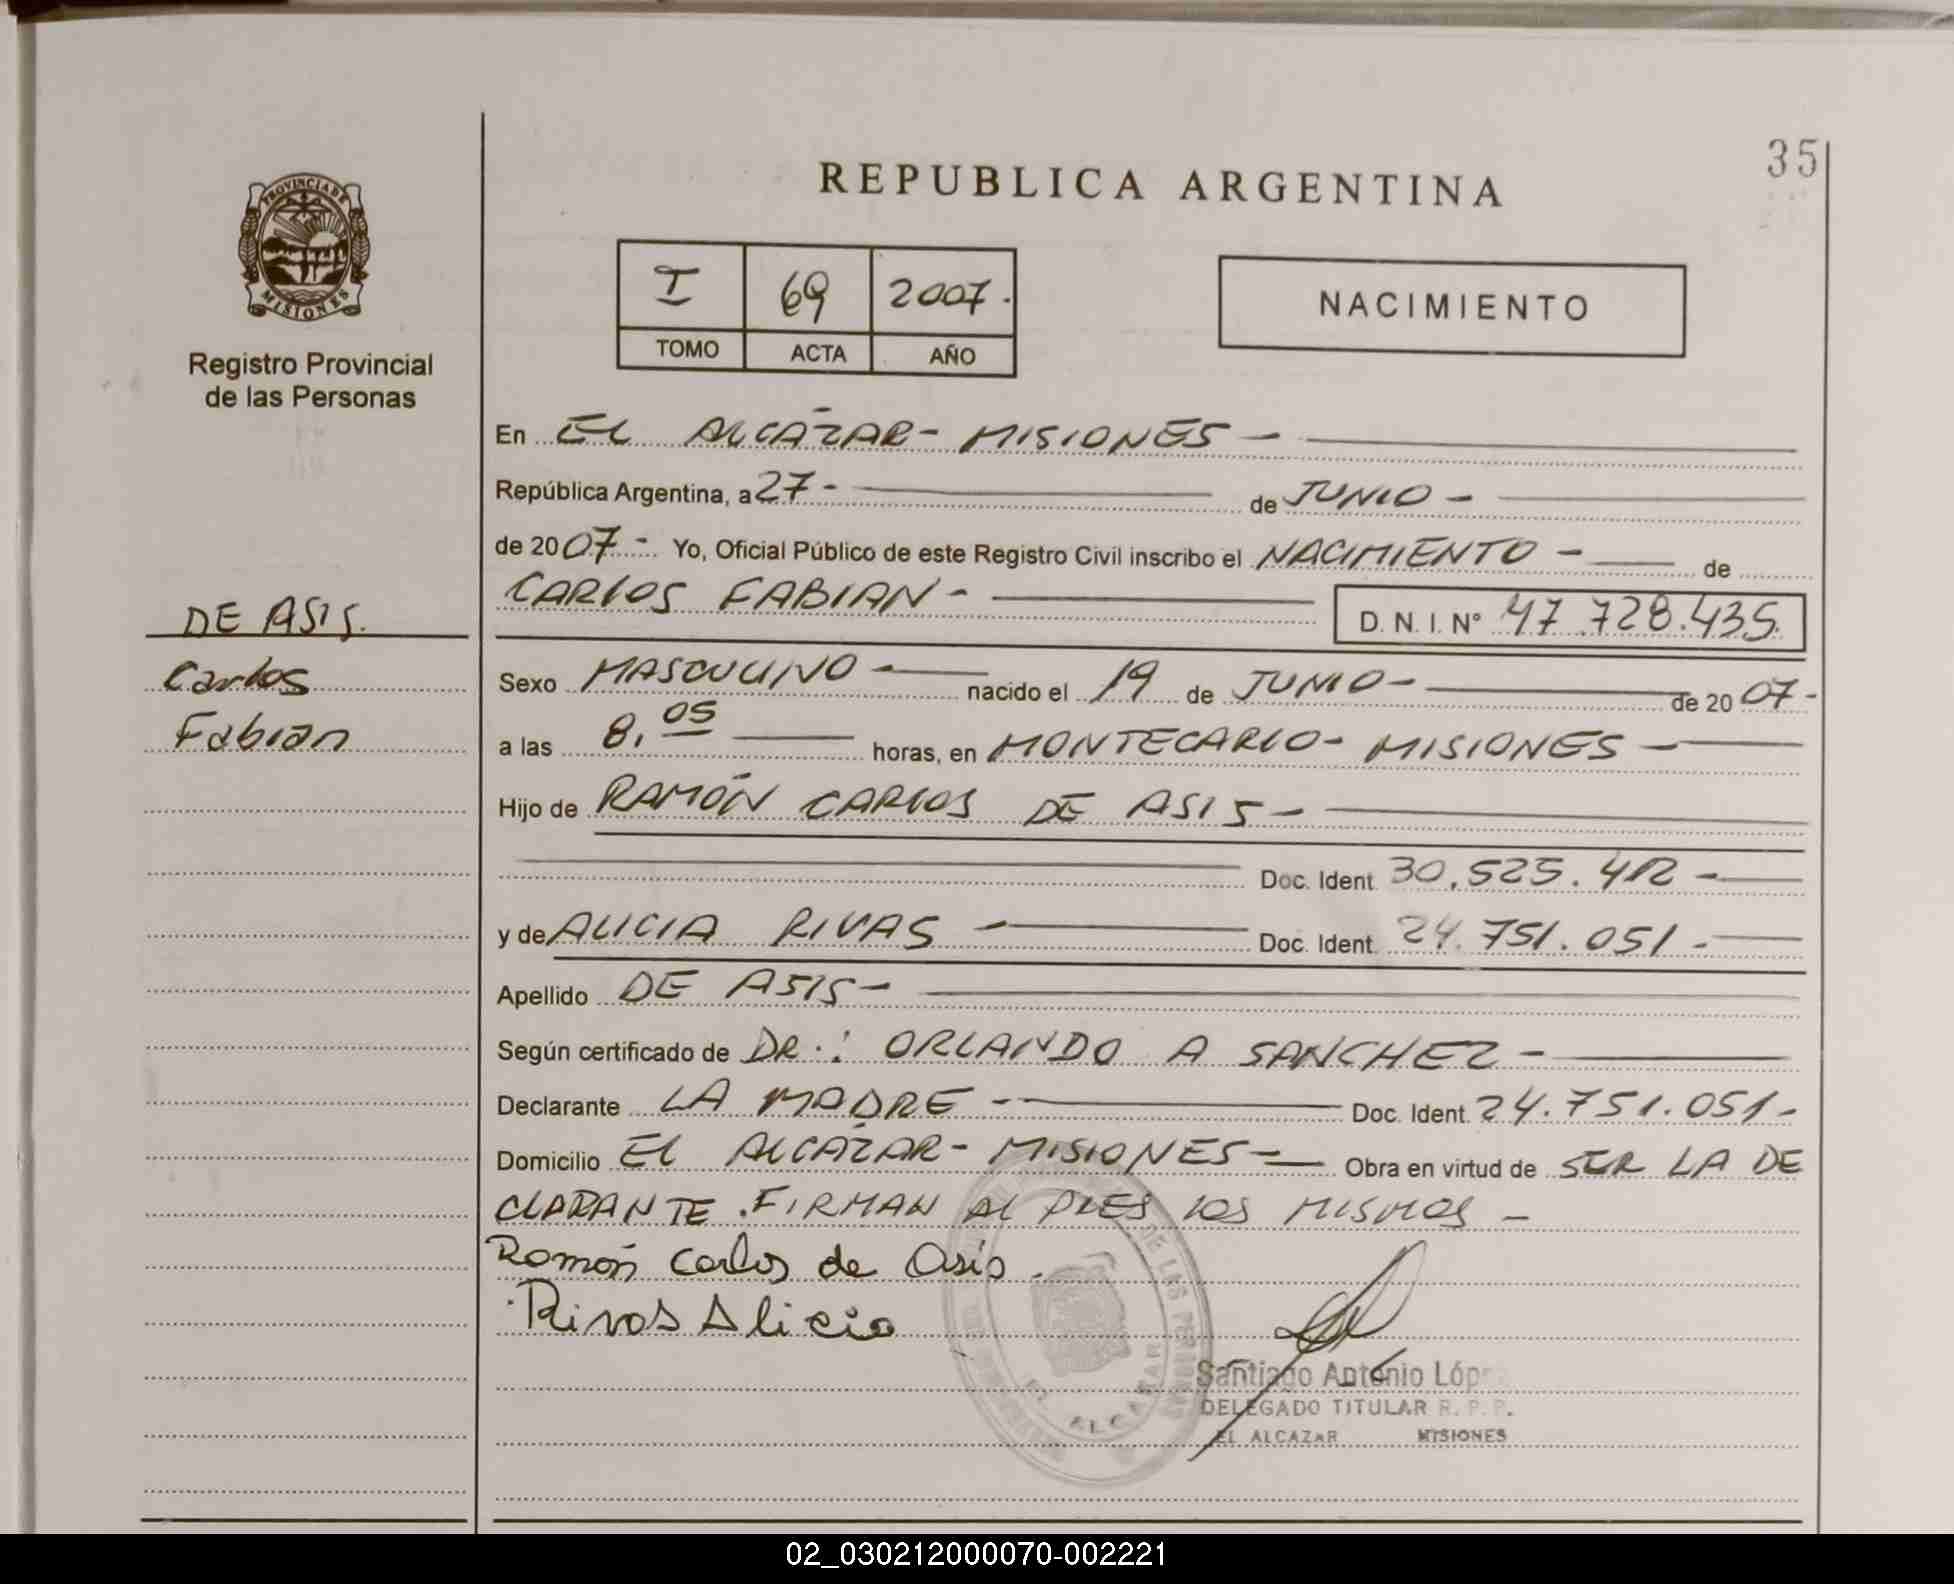 35
REPUBLICA ARGENTINA
PROVINCIA DE
MISIONES
Registro Provincial
de las Personas
I 69 2007.
TOMO ACTA AÑO
NACIMIENTO
En EL ALCÁZAR - MISIONES -
República Argentina, a 27 - de JUNIO -
de 2007 - Yo, Oficial Público de este Registro Civil inscribo el NACIMIENTO - de
CARLOS FABIAN - D. N. I. Nº 47.728.435.
DE ASIS.
Carlos
Fabian
Sexo MASCULINO - nacido el 19 de JUNIO - de 2007 -
a las 8,05 horas, en MONTECARLO - MISIONES -
Hijo de RAMÓN CARLOS DE ASIS -
Doc. Ident. 30.525.412 -
y de ALICIA RIVAS - Doc. Ident. 24.751.051 -
Apellido DE ASIS -
Según certificado de DR.: ORLANDO A SANCHEZ -
Declarante LA MADRE - Doc. Ident. 24.751.051 -
Domicilio EL ALCÁZAR - MISIONES - Obra en virtud de SER LA DE
CLARANTE. FIRMAN AL PIES LOS MISMOS -
Ramón Carlos de Asis.
Rivas Alicia
DE LAS PER
EL ALCAZAR
Santiago Antonio Lóp
DELEGADO TITULAR R. P. P.
EL ALCAZAR MISIONES
02_030212000070-002221